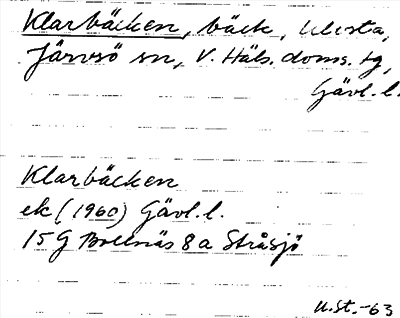 Klarbäcken, bäck, Ulvsta,
Järvsö sn, V. Häls. doms. tg,
Gävl. l.
Klarbäcken
ek (1960) Gävl. l.
15G Bollnäs 8a Stråsjö
U.St.-63